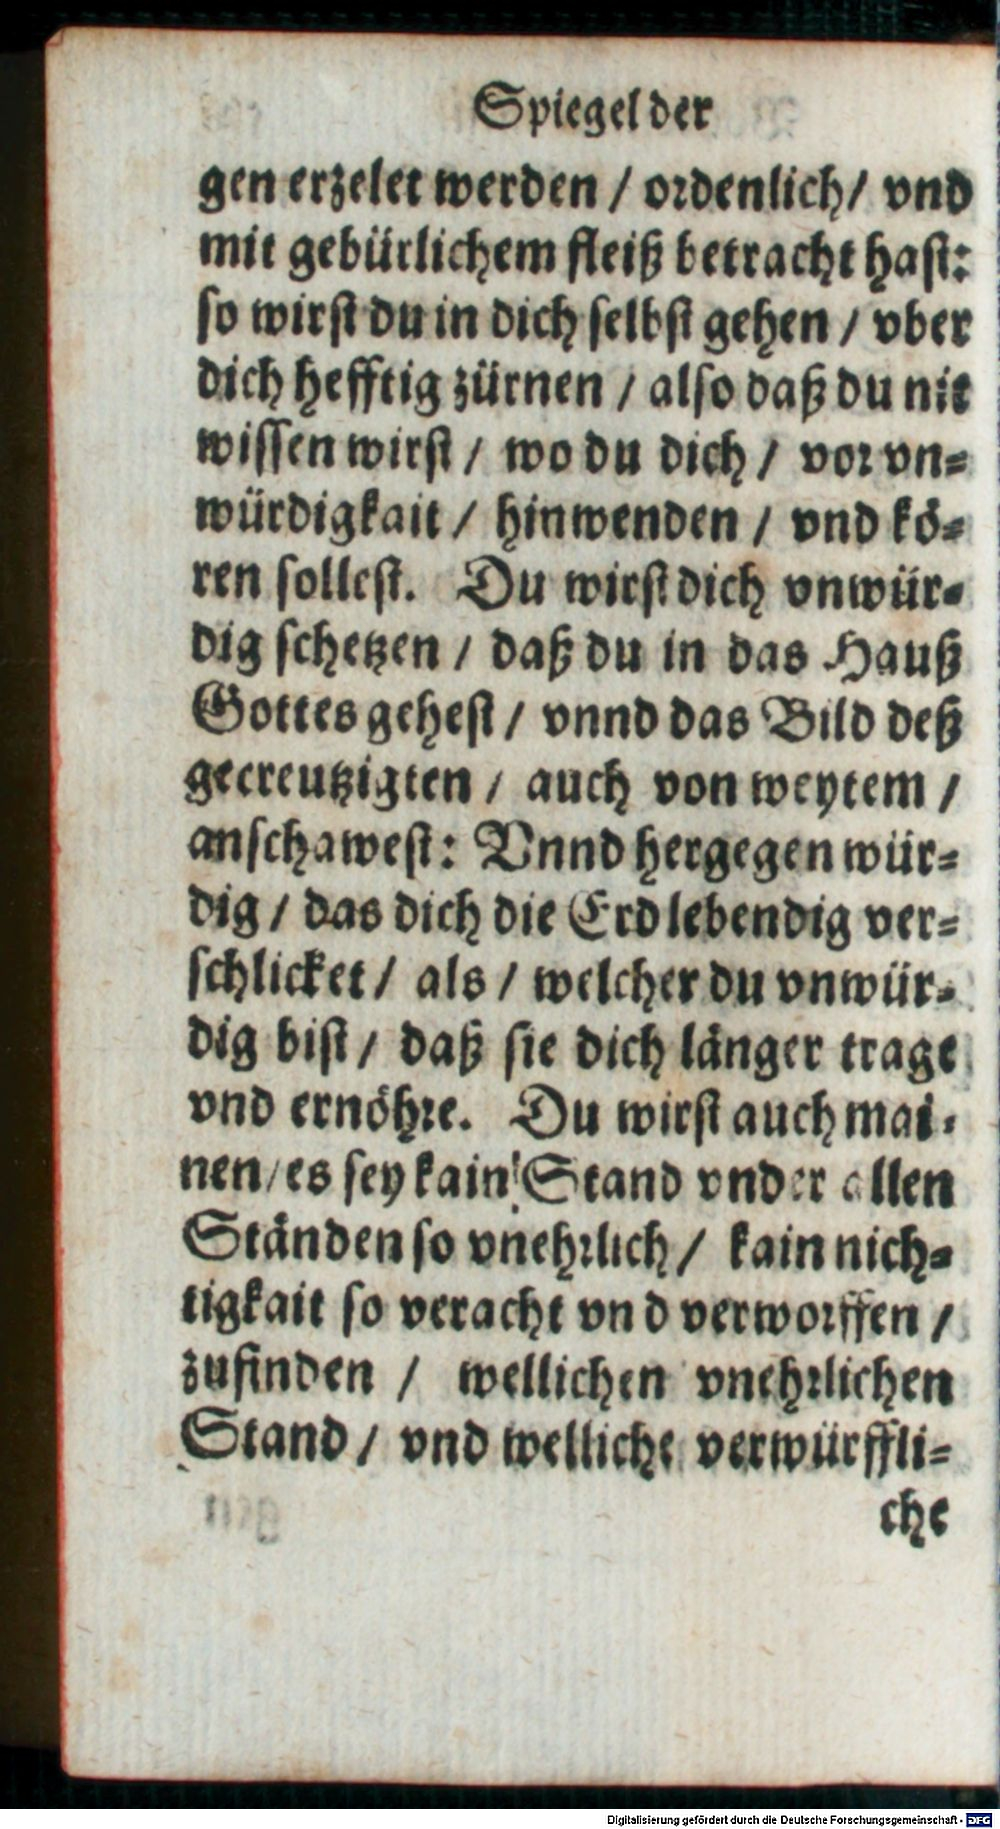 Spiegel der
gen erzelet werden / ordenlich / vnd
mit gebürlichem fleiß betracht hast:
so wirst du in dich selbst gehen / vber
dich hefftig zürnen / also daß du nit
wissen wirst / wo du dich / vor vn⸗
würdigkait / hinwenden / vnd kö⸗
ren sollest. Du wirst dich vnwür⸗
dig schetzen / daß du in das Hauß
Gottes gehest / vnnd das Bild deß
gecreutzigten / auch von weytem /
anschawest: Vnnd hergegen wür⸗
dig / das dich die Erd lebendig ver⸗
schlicket / als / welcher du vnwür⸗
dig bist / daß sie dich länger trage
vnd ernöhre. Du wirst auch mai⸗
nen / es sey kain Stand vnder allen
Ständen so vnehrlich / kain nich⸗
tigkait so veracht vnd verworffen /
zufinden / wellichen vnehrlichen
Stand / vnd welliche verwürffli⸗
che
Digitalisierung gefördert durch die Deutsche Forschungsgemeinschaft - DFG